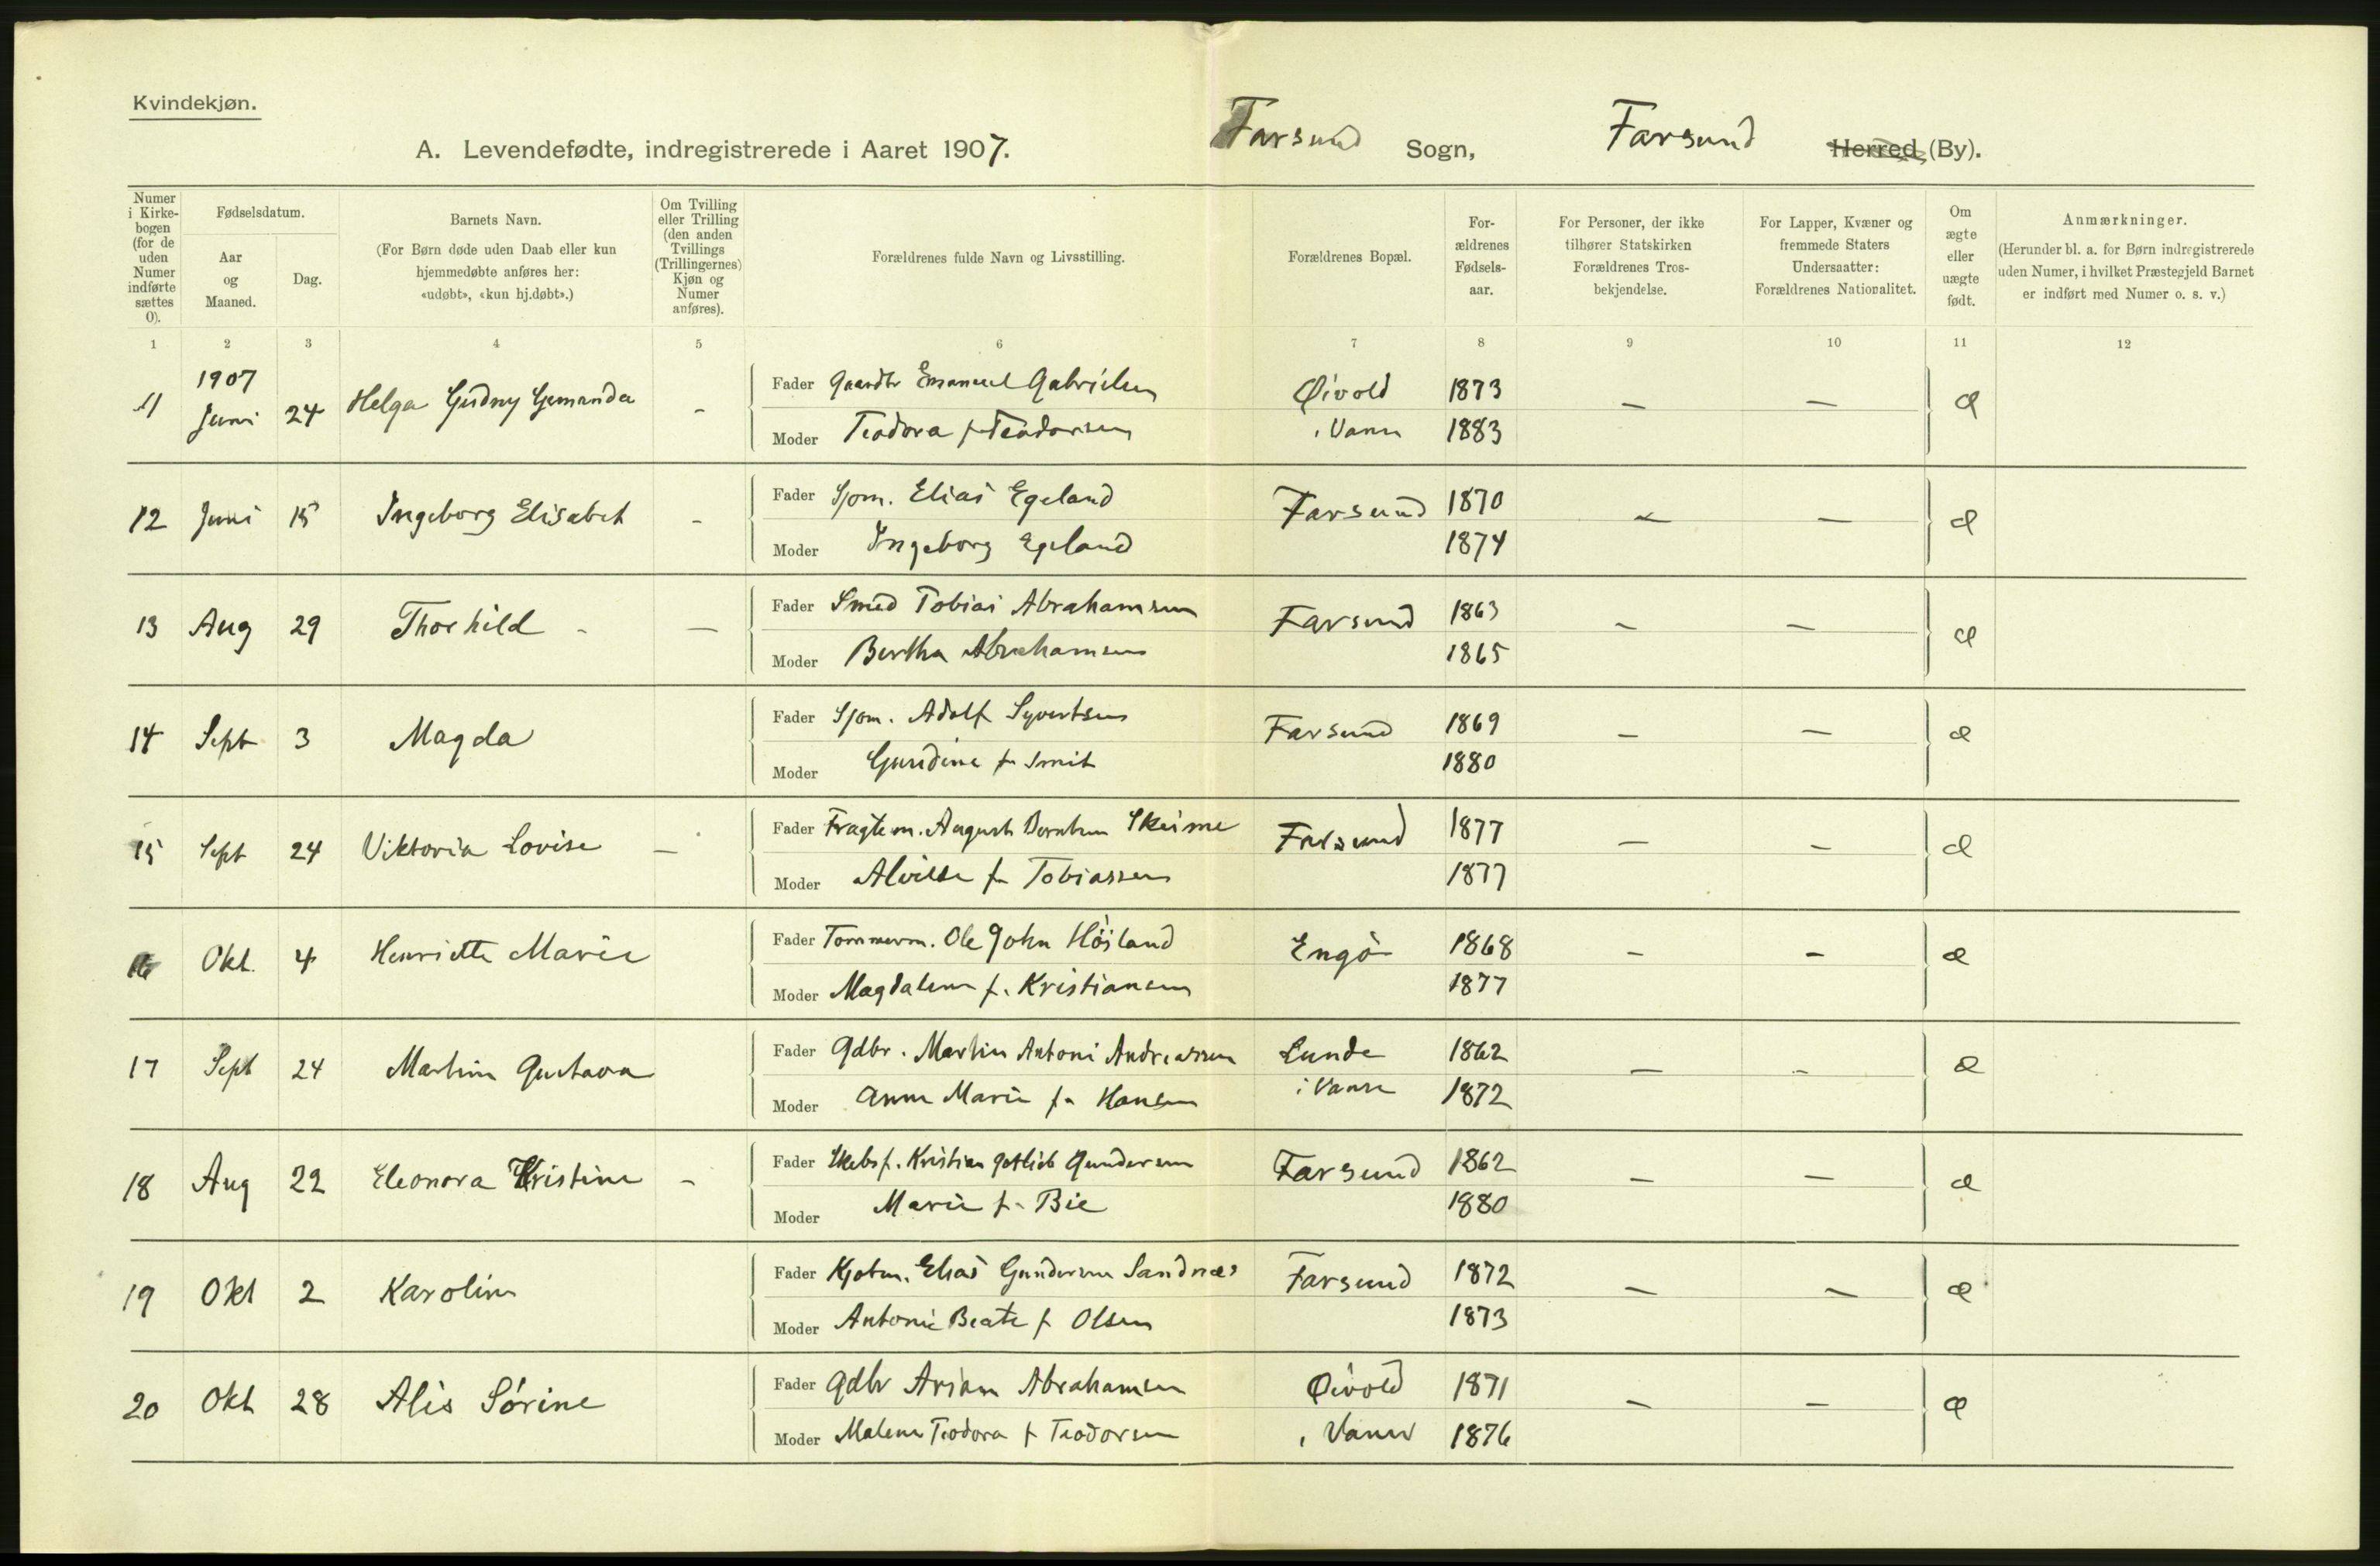 Kvindekjøn.
A. Levendefødte, indregistrerede i Aaret 1907. Farsund Sogn, Farsund Herred (By).
Numer i Kirke-bogen (for de uden Numer indførte sættes 0).
Fødselsdatum.
Aar og Maaned.
Dag.
Barnets Navn.
(For Børn døde uden Daab eller kun hjemmedøbte anføres her: «udøbt», «kun hj.døbt».)
Om Tvilling eller Trilling (den anden Tvillings (Trillingernes) Kjøn og Numer anføres).
Forældrenes fulde Navn og Livsstilling.
Forældrenes Bopæl.
For-ældrenes Fødsels-aar.
For Personer, der ikke tilhører Statskirken Forældrenes Tros-bekjendelse.
For Lapper, Kvæner og fremmede Staters Undersaatter: Forældrenes Nationalitet.
Om ægte eller uægte født.
Anmærkninger.
(Herunder bl. a. for Børn indregistrerede uden Numer, i hvilket Præstegjeld Barnet er indført med Numer o. s. v.)
1 2 3 4 5 6 7 8 9 10 11 12
11 1907 Juni 24 Helga Gudny - Fader Gaardbr Emanuel Gabrielsen Øivold 1873 — — æ
Moder Teodora f. Teodorsen i Vanse 1883
12 Juni 15 Ingeborg Elisabet - Fader Sjøm. Elias Egeland Farsund 1870 — — æ
Moder Ingeborg Egeland 1874
13 Aug 29 Thorhild - — Fader Smed Tobias Abrahamsen Farsund 1863 — — æ
Moder Bertha Abrahamsen 1865
14 Sept 3 Magda Fader Sjøm. Adolf Syvertsen Farsund 1869 — — æ
Moder Gundine f. Smit 1880
15 Sept 24 Viktoria Lovise — Fader Fragtem. August Berntsen Skeime Farsund 1877 — — æ
Moder f. Tobiassen 1877
16 Okt. 4 Henriette Marie Fader Tømmerm. Ole John Höiland Engö 1868 - - æ
Moder Magdalene f. Kristiansen 1877
17 Sept 24 Martine Gustava Fader Gdbr. Martin Antoni Andreassen Lunde 1862 — - æ
Moder Anne Marie f. Hansen i Vanse 1872
18 Aug 22 Eleonora Kristine - Fader Skibsf. Kristian Gotlieb Gundersen Farsund 1862 — — æ
Moder Marie f. Bie 1880
19 Okt 2 Karoline Fader Kjøbm. Elias Gundersen Sandnæs Farsund 1872 — — æ
Moder Antonie Beate f Olsen 1873
20 Okt 28 Alis Sörine Fader Gdbr Abrahamsen Øivold 1871 — — æ
Moder Malene Teodora f Teodorsen i Vanse 1876